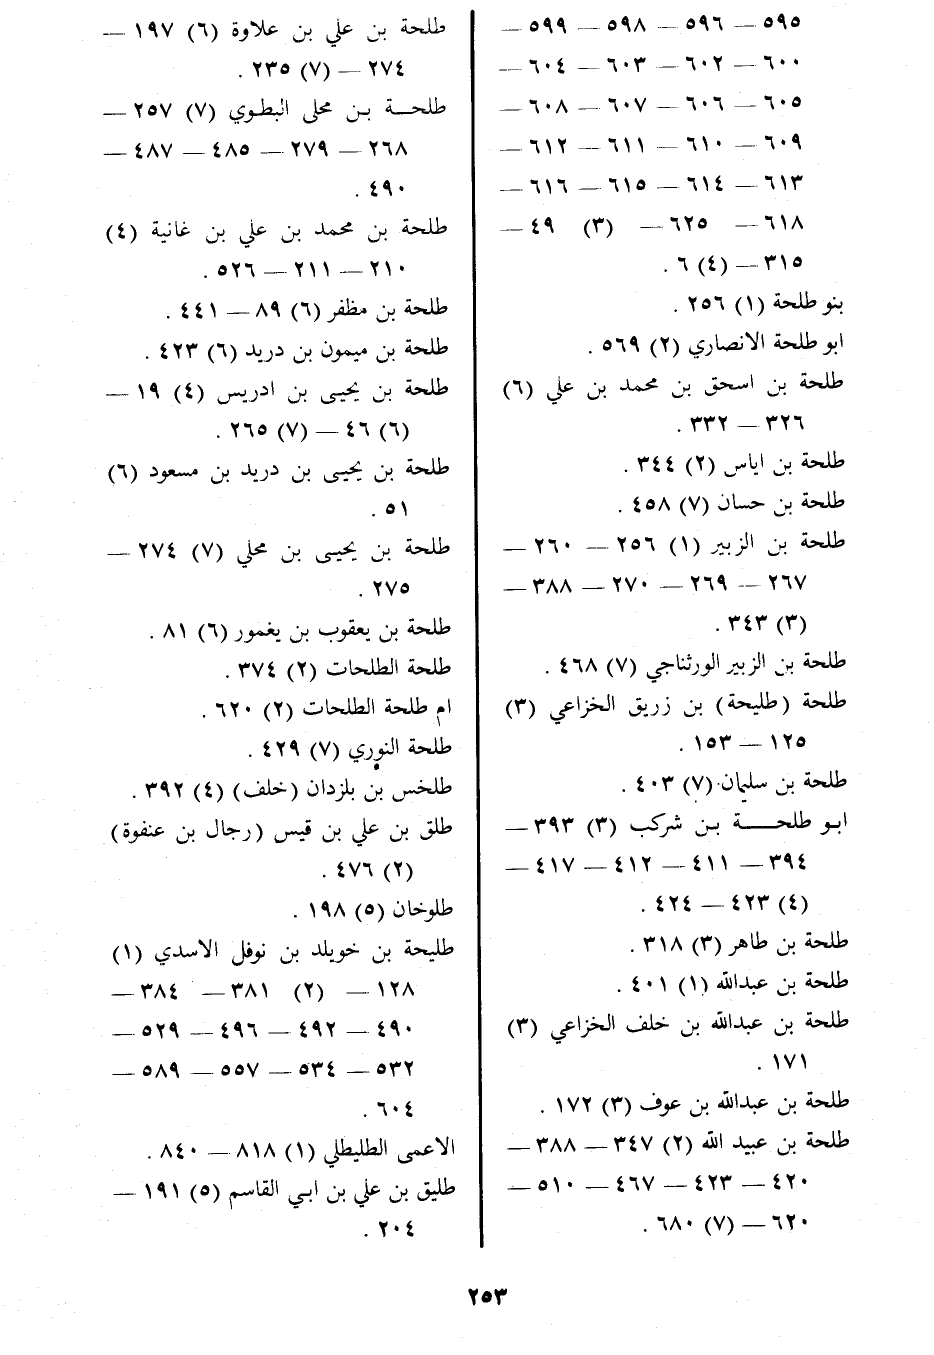 ٥٩٥ — ٥٩٦ — ٥٩٨ — ٥٩٩ —
٦٠٠ — ٦٠٢ — ٦٠٣ — ٦٠٤ —
٦٠٥ — ٦٠٦ — ٦٠٧ — ٦٠٨ —
٦٠٩ — ٦١٠ — ٦١١ — ٦١٢ —
٦١٣ — ٦١٤ — ٦١٥ — ٦١٦ —
٦١٨ — ٦٢٥ — (٣) ٤٩ —
٣١٥ — (٤) ٦ .
بنو طلحة (١) ٢٥٦ .
ابو طلحة الانصاري (٢) ٥٦٩ .
طلحة بن اسحق بن محمد بن علي (٦)
٣٢٦ — ٣٣٢ .
طلحة بن اياس (٢) ٣٤٤ .
طلحة بن حسان (٧) ٤٥٨ .
طلحة بن الزبير (١) ٢٥٦ — ٢٦٠ —
٢٦٧ — ٢٦٩ — ٢٧٠ — ٣٨٨ —
(٣) ٣٤٣ .
طلحة بن الزبير الورثناجي (٧) ٤٦٨ .
طلحة (طليحة) بن زريق الخزاعي (٣)
١٢٥ — ١٥٣ .
طلحة بن سليمان (٧) ٤٠٣ .
ابو طلحة بن شركب (٣) ٣٩٣ —
٣٩٤ — ٤١١ — ٤١٢ — ٤١٧ —
(٤) ٤٢٣ — ٤٢٤ .
طلحة بن طاهر (٣) ٣١٨ .
طلحة بن عبدالله (١) ٤٠١ .
طلحة بن عبدالله بن خلف الخزاعي (٣)
١٧١ .
طلحة بن عبدالله بن عوف (٣) ١٧٢ .
طلحة بن عبيد الله (٢) ٣٤٧ — ٣٨٨ —
٤٢٠ — ٤٢٣ — ٤٦٧ — ٥١٠ —
٦٢٠ — (٧) ٦٨٠ .
طلحة بن علي بن علاوة (٦) ١٩٧ —
٢٧٤ — (٧) ٢٣٥ .
طلحة بن محلى البطوي (٧) ٢٥٧ —
٢٦٨ — ٢٧٩ — ٤٨٥ — ٤٨٧ —
٤٩٠ .
طلحة بن محمد بن علي بن غانية (٤)
٢١٠ — ٢١١ — ٥٢٦ .
طلحة بن مظفر (٦) ٨٩ — ٤٤١ .
طلحة بن ميمون بن دريد (٦) ٤٢٣ .
طلحة بن يحيى بن ادريس (٤) ١٩ —
(٦) ٤٦ — (٧) ٢٦٥ .
طلحة بن يحيى بن دريد بن مسعود (٦)
٥١ .
طلحة بن يحيى بن محلي (٧) ٢٧٤ —
٢٧٥ .
طلحة بن يعقوب بن يغمور (٦) ٨١ .
طلحة الطلحات (٢) ٣٧٤ .
ام طلحة الطلحات (٢) ٦٢٠ .
طلحة النوري (٧) ٤٢٩ .
طلخس بن بلزدان (خلف) (٤) ٣٩٢ .
طلق بن علي بن قيس (رجال بن عنفوة)
(٢) ٤٧٦ .
طلوخان (٥) ١٩٨ .
طليحة بن خويلد بن نوفل الاسدي (١)
١٢٨ — (٢) ٣٨١ — ٣٨٤ —
٤٩٠ — ٤٩٢ — ٤٩٦ — ٥٢٩ —
٥٣٢ — ٥٣٤ — ٥٥٧ — ٥٨٩ —
٦٠٤ .
الاعمى الطليطلي (١) ٨١٨ — ٨٤٠ .
طليق بن علي بن ابي القاسم (٥) ١٩١ —
٢٠٤ .
٢٥٣